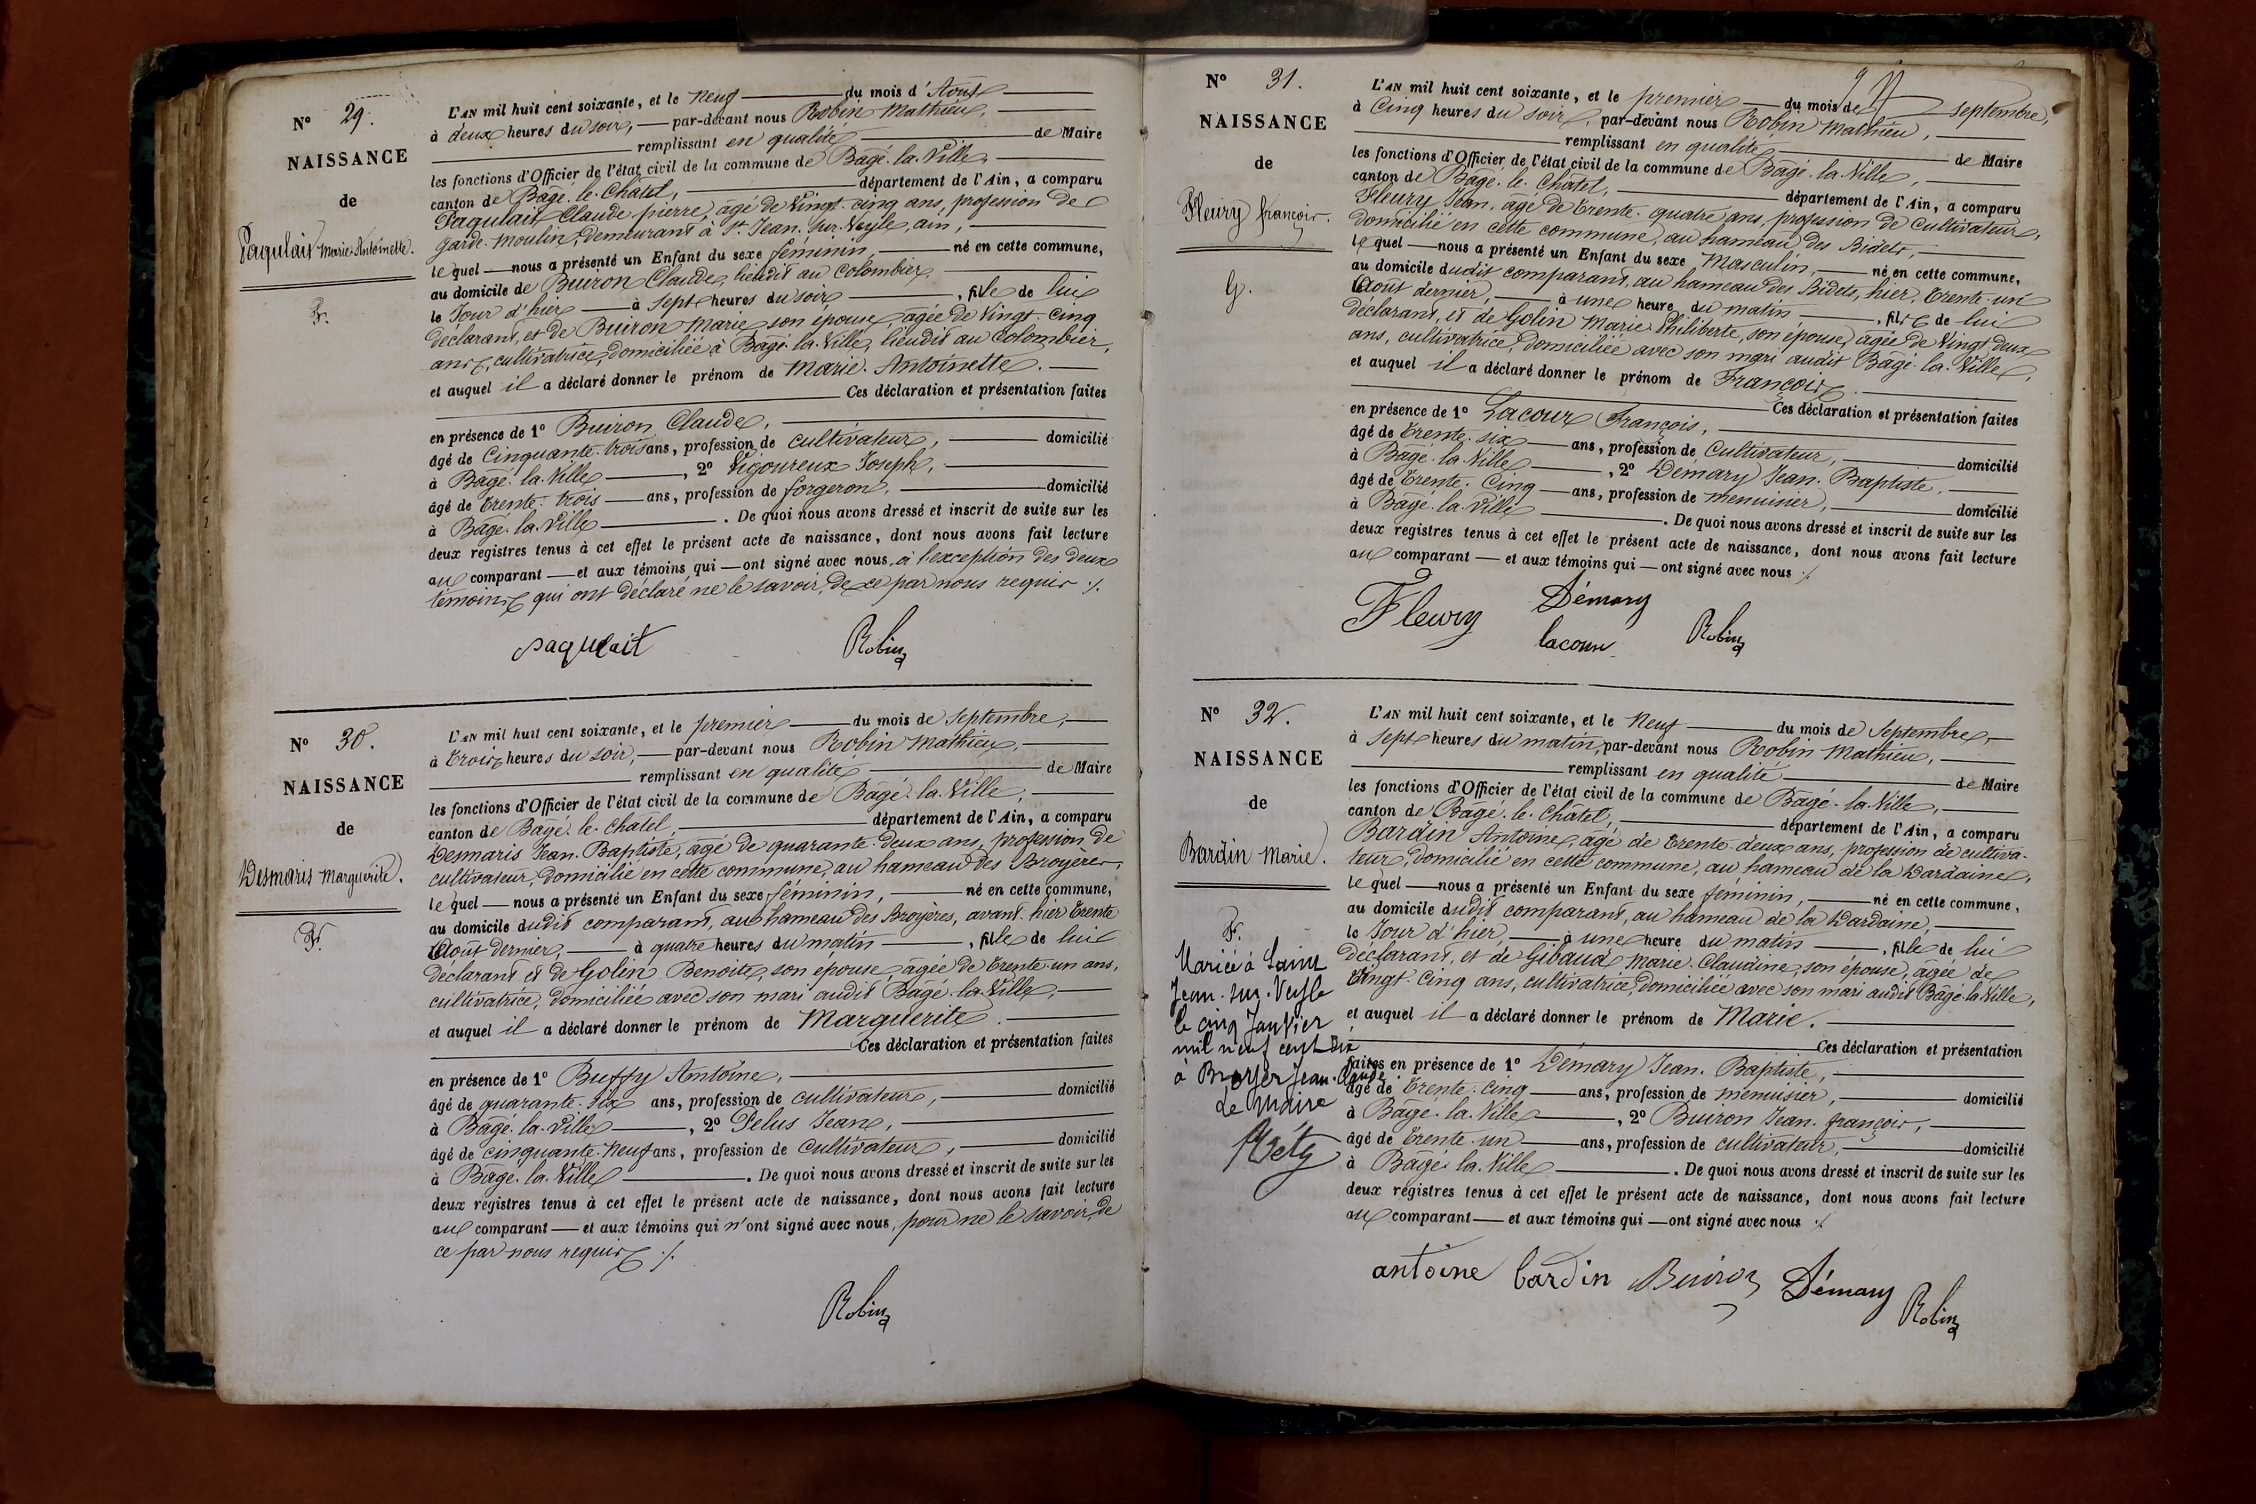 N° 29.
NAISSANCE
de
Paquelait Marie-Antoinette.
F.
L'AN mil huit cent soixante, et le neuf du mois d'Août
à deux heures du soir, par-devant nous Robin Mathieu,
remplissant en qualité de Maire
les fonctions d'Officier de l'état civil de la commune de Bâgé-la-Ville,
canton de Bâgé-le-Châtel, département de l'Ain, a comparu
Claude pierre, âgé de Vingt-cinq ans, profession de
garde-moulin, demeurant à St Jean-sur-Veyle, ain,
lequel nous a présenté un Enfant du sexe féminin, né en cette commune,
au domicile de Buiron Claude, lieudit au Colombier,
le Jour d'hier à sept heures du soir, fille de lui
déclarant, et de Buiron Marie son épouse, âgée de Vingt-cinq
ans, cultivatrice, domiciliée à Bâgé-la-Ville, lieudit au Colombier,
et auquel il a déclaré donner le prénom de Marie-Antoinette.
Ces déclaration et présentation faites
en présence de 1° Buiron Claude,
âgé de Cinquante-trois ans, profession de cultivateur, domicilié
à Bâgé-la-Ville, 2° Vigoureux Joseph,
âgé de trente-trois ans, profession de forgeron, domicilié
à Bâgé-la-Ville. De quoi nous avons dressé et inscrit de suite sur les
deux registres tenus à cet effet le présent acte de naissance, dont nous avons fait lecture
au comparant et aux témoins qui ont signé avec nous, à l'exception des deux
témoins qui ont déclaré ne le savoir, de ce par nous requis ./.
Robin
N° 30.
NAISSANCE
de
Desmaris Marguerite.
F.
L'AN mil huit cent soixante, et le premier du mois de Septembre,
à trois heures du soir, par-devant nous Robin Mathieu,
remplissant en qualité de Maire
les fonctions d'Officier de l'état civil de la commune de Bâgé-la-Ville,
canton de Bâgé-le-Chatel, département de l'Ain, a comparu
Desmaris Jean-Baptiste, âgé de quarante-deux ans, profession de
cultivateur, domicilié en cette commune, au hameau des Broyères,
lequel nous a présenté un Enfant du sexe féminin, né en cette commune,
au domicile dudit comparant, au hameau des Broyères, avant-hier trente
Août dernier, à quatre heures du matin, fille de lui
déclarant et de Golin Benoite, son épouse âgée de trente-un ans,
cultivatrice, domiciliée avec son mari audit Bâgé-la-Ville,
et auquel il a déclaré donner le prénom de Marguerite.
Ces déclaration et présentation faites
en présence de 1° Buffy Antoine,
âgé de quarante-six ans, profession de cultivateur, domicilié
à Bâgé-la-Ville, 2° Pelus Jean,
âgé de cinquante-neuf ans, profession de Cultivateur, domicilié
à Bâgé-la-Ville. De quoi nous avons dressé et inscrit de suite sur les
deux registres tenus à cet effet le présent acte de naissance, dont nous avons fait lecture
au comparant et aux témoins qui n'ont signé avec nous, pour ne le savoir, de
ce par nous requis ./.
Robin
N° 31.
NAISSANCE
de
Fleury françois.
G.
L'AN mil huit cent soixante, et le premier du mois de septembre,
à Cinq heures du soir, par-devant nous Robin Mathieu,
remplissant en qualité de Maire
les fonctions d'Officier de l'état civil de la commune de Bâgé-la-Ville,
canton de Bâgé-le-Châtel, département de l'Ain, a comparu
Fleury Jean, âgé de trente-quatre ans, profession de cultivateur,
domicilié en cette commune, au hameau des Bidets,
lequel nous a présenté un Enfant du sexe Masculin, né en cette commune,
au domicile dudit comparant, au hameau des Bidets, hier, trente-un
Août dernier, à une heure du matin, fils de lui
déclarant, et de Golin Marie-Philiberte, son épouse, âgée de Vingt-deux
ans, cultivatrice, domiciliée avec son mari audit Bâgé-la-Ville,
et auquel il a déclaré donner le prénom de François.
Ces déclaration et présentation faites
en présence de 1° Lacour François,
âgé de trente-six ans, profession de Cultivateur, domicilié
à Bâgé-la-Ville, 2° Démary Jean-Baptiste,
âgé de trente-Cinq ans, profession de menuisier, domicilié
à Bâgé-la-Ville. De quoi nous avons dressé et inscrit de suite sur les
deux registres tenus à cet effet le présent acte de naissance, dont nous avons fait lecture
au comparant et aux témoins qui ont signé avec nous ./.
Fleury Démary
lacour Robin
N° 32.
NAISSANCE
de
Bardin Marie.
F.
Mariée à Saint
Jean-sur-Veyle
le cinq Janvier
mil neuf cent dix
à Jean-Claude
Le Maire
L'AN mil huit cent soixante, et le neuf du mois de Septembre,
à sept heures du matin, par-devant nous Robin Mathieu,
remplissant en qualité de Maire
les fonctions d'Officier de l'état civil de la commune de Bâgé-la-Ville,
canton de Bâgé-le-Châtel, département de l'Ain, a comparu
Bardin Antoine, âgé de trente-deux ans, profession de cultiva-
teur, domicilié en cette commune, au hameau de la Dardaine,
lequel nous a présenté un Enfant du sexe féminin, né en cette commune,
au domicile dudit comparant, au hameau de la Dardaine,
le Jour d'hier, à une heure du matin, fille de lui
déclarant, et de Gibaud Marie-Claudine, son épouse, âgée de
Vingt-cinq ans, cultivatrice, domiciliée avec son mari audit Bâgé-la-Ville,
et auquel il a déclaré donner le prénom de Marie.
Ces déclaration et présentation
faites en présence de 1° Démary Jean-Baptiste,
âgé de trente-cinq ans, profession de menuisier, domicilié
à Bâgé-la-Ville, 2° Buiron Jean-françois,
âgé de trente-un ans, profession de cultivateur, domicilié
à Bâgé-la-Ville. De quoi nous avons dressé et inscrit de suite sur les
deux registres tenus à cet effet le présent acte de naissance, dont nous avons fait lecture
au comparant et aux témoins qui ont signé avec nous ./.
antoine bardin Buiron Démary Robin